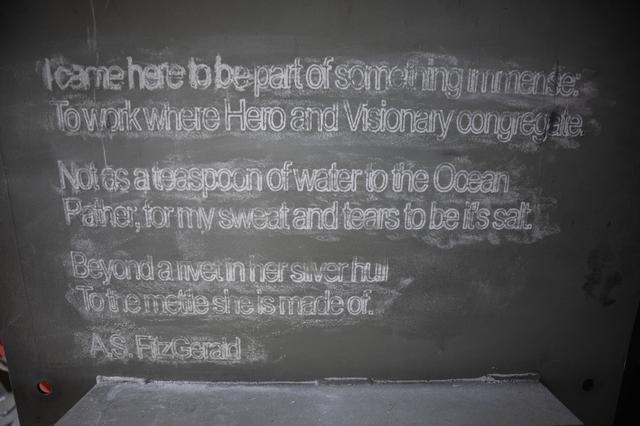 I came here to be part of something immense:
To work where Hero and Visionary congregate.
Not as a teaspoon of water to the Ocean
Rather, for my sweat and tears to be it's salt.
Beyond a rivet in her silver hull
To the mettle she is made of.
A.S. FitzGerald